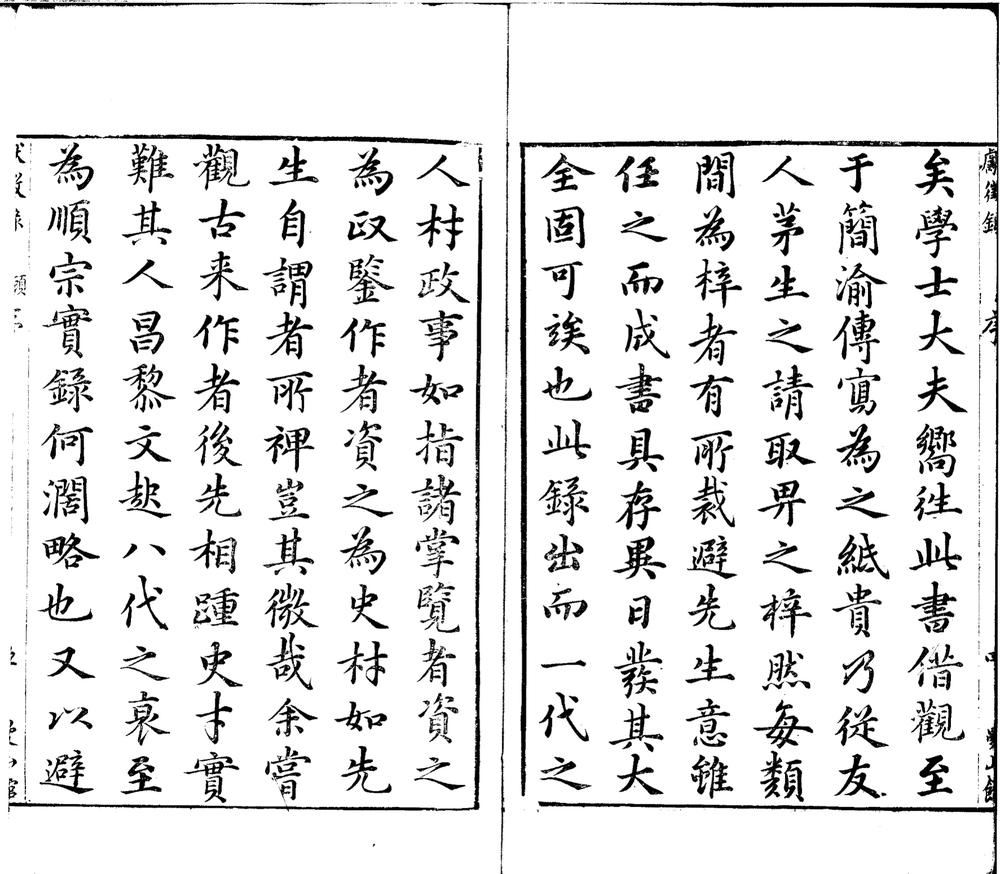 獻徵錄 序 四 曼山館
矣學士大夫嚮往此書借觀至
于簡渝傳寫為之紙貴乃從友
人茅生之請取畀之梓然每類
間為梓者有所裁避先生意雖
任之而成書具存異日發其大
全固可竢也此錄出而一代之
人材政事如指諸掌覽者資之
為政鑒作者資之為史材如先
生自謂者所裨豈其微哉余嘗
觀古来作者後先相踵史才實
難其人昌黎文起八代之衰至
為順宗實錄何濶略也又以避
獻徵錄 顧序 五 曼山館